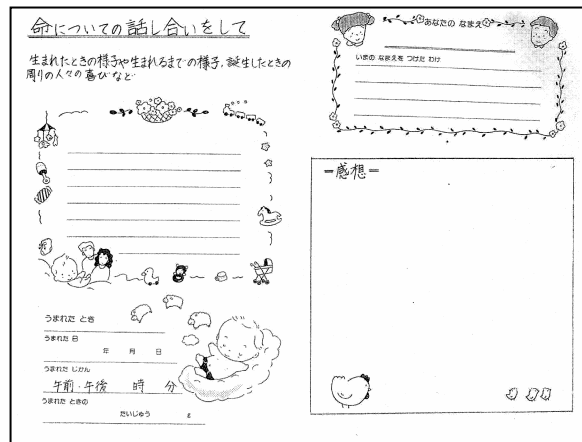 命についての話し合いをして
生まれたときの様子や生まれるまでの様子、誕生したときの
周りの人々の喜びなど
うまれた とき
うまれた 日
年 月 日
うまれた じかん
午前・午後 時 分
うまれた ときの
たいじゅう g
あなたの なまえ
いまの なまえを つけた わけ
=感想=